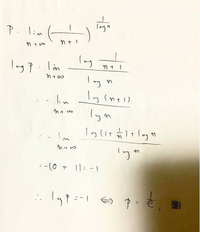 P = lim_{n→∞} (1/(n+1))^{1/log n}
log P = lim_{n→∞} (log 1/(n+1)) / (log n)
= - lim_{n→∞} (log (n+1)) / (log n)
= - lim_{n→∞} (log (1 + 1/n) + log n) / (log n)
= -(0 + 1) = -1
∴ log P = -1 ⇔ P = 1/e.